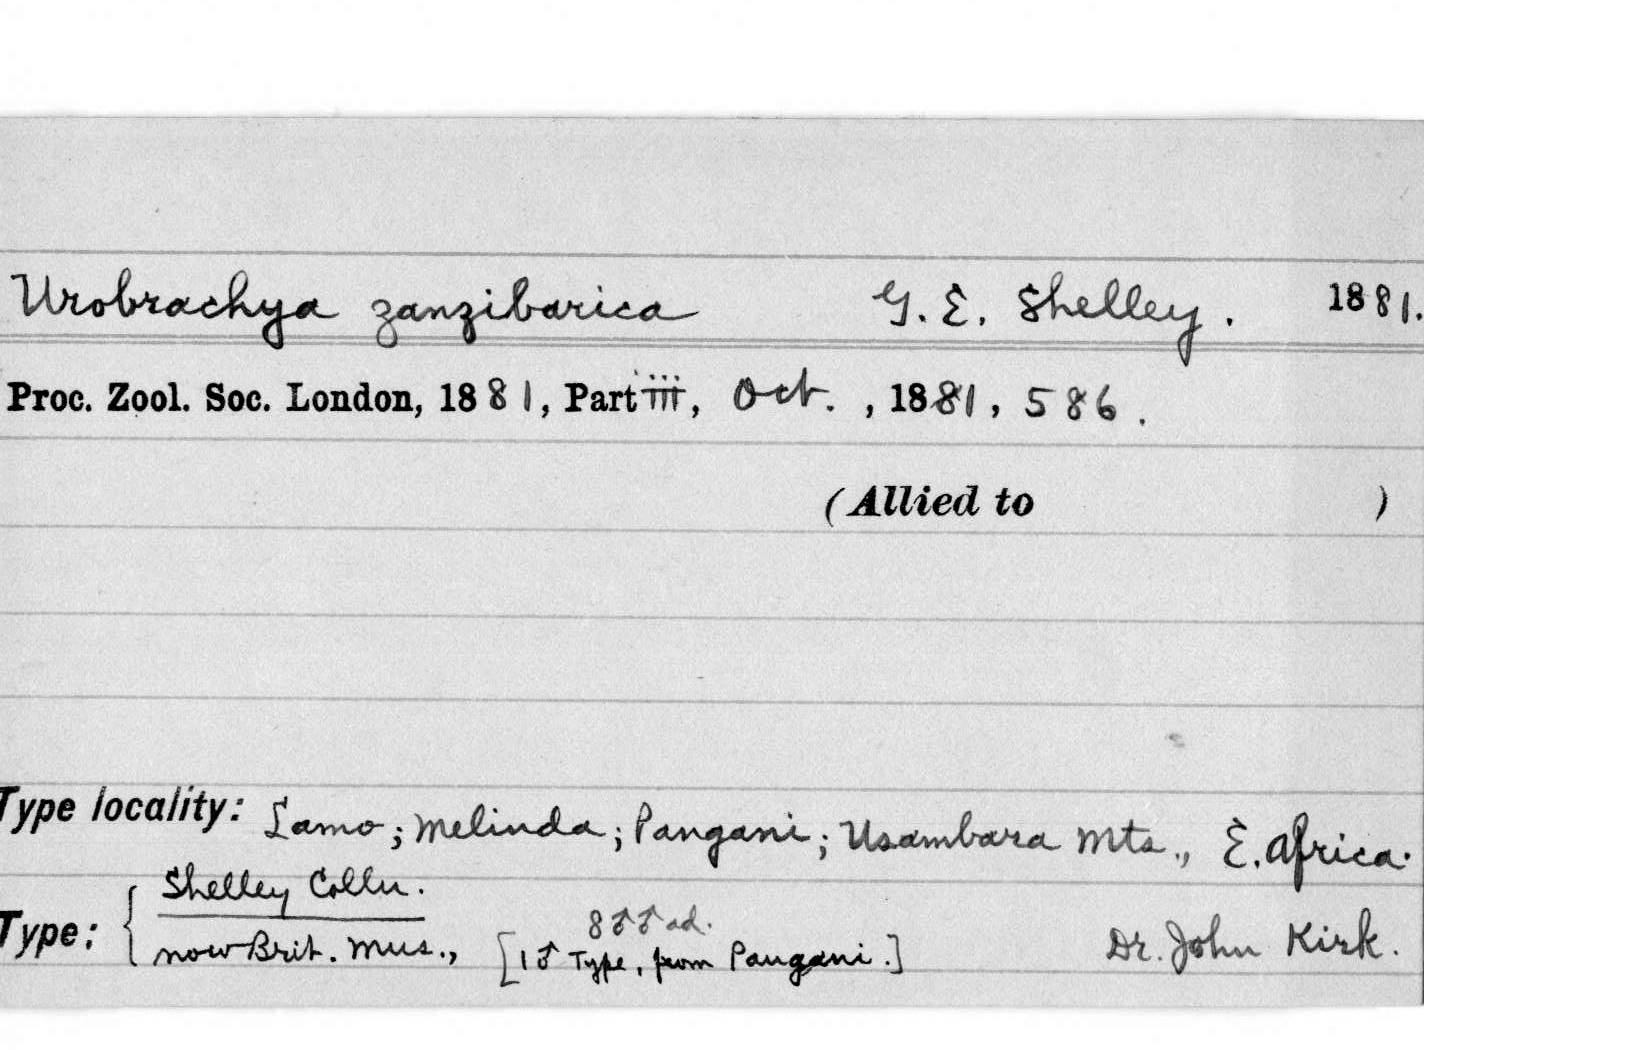 Urobrachya zanzibarica G. E. Shelley. 1881.
Proc. Zool. Soc. London, 1881, Part iii, Oct. , 1881, 586.
(Allied to )
Type locality: Lamo; Melinda; Pangani; Usambara Mts., E. Africa.
Shelley Colln.
8♂♂ ad.
Type: { now Brit. Mus., [1♂ Type, from Pangani.] Dr. John Kirk.